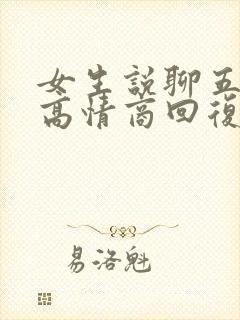 女生說聊五
高情商回復
易洛魁